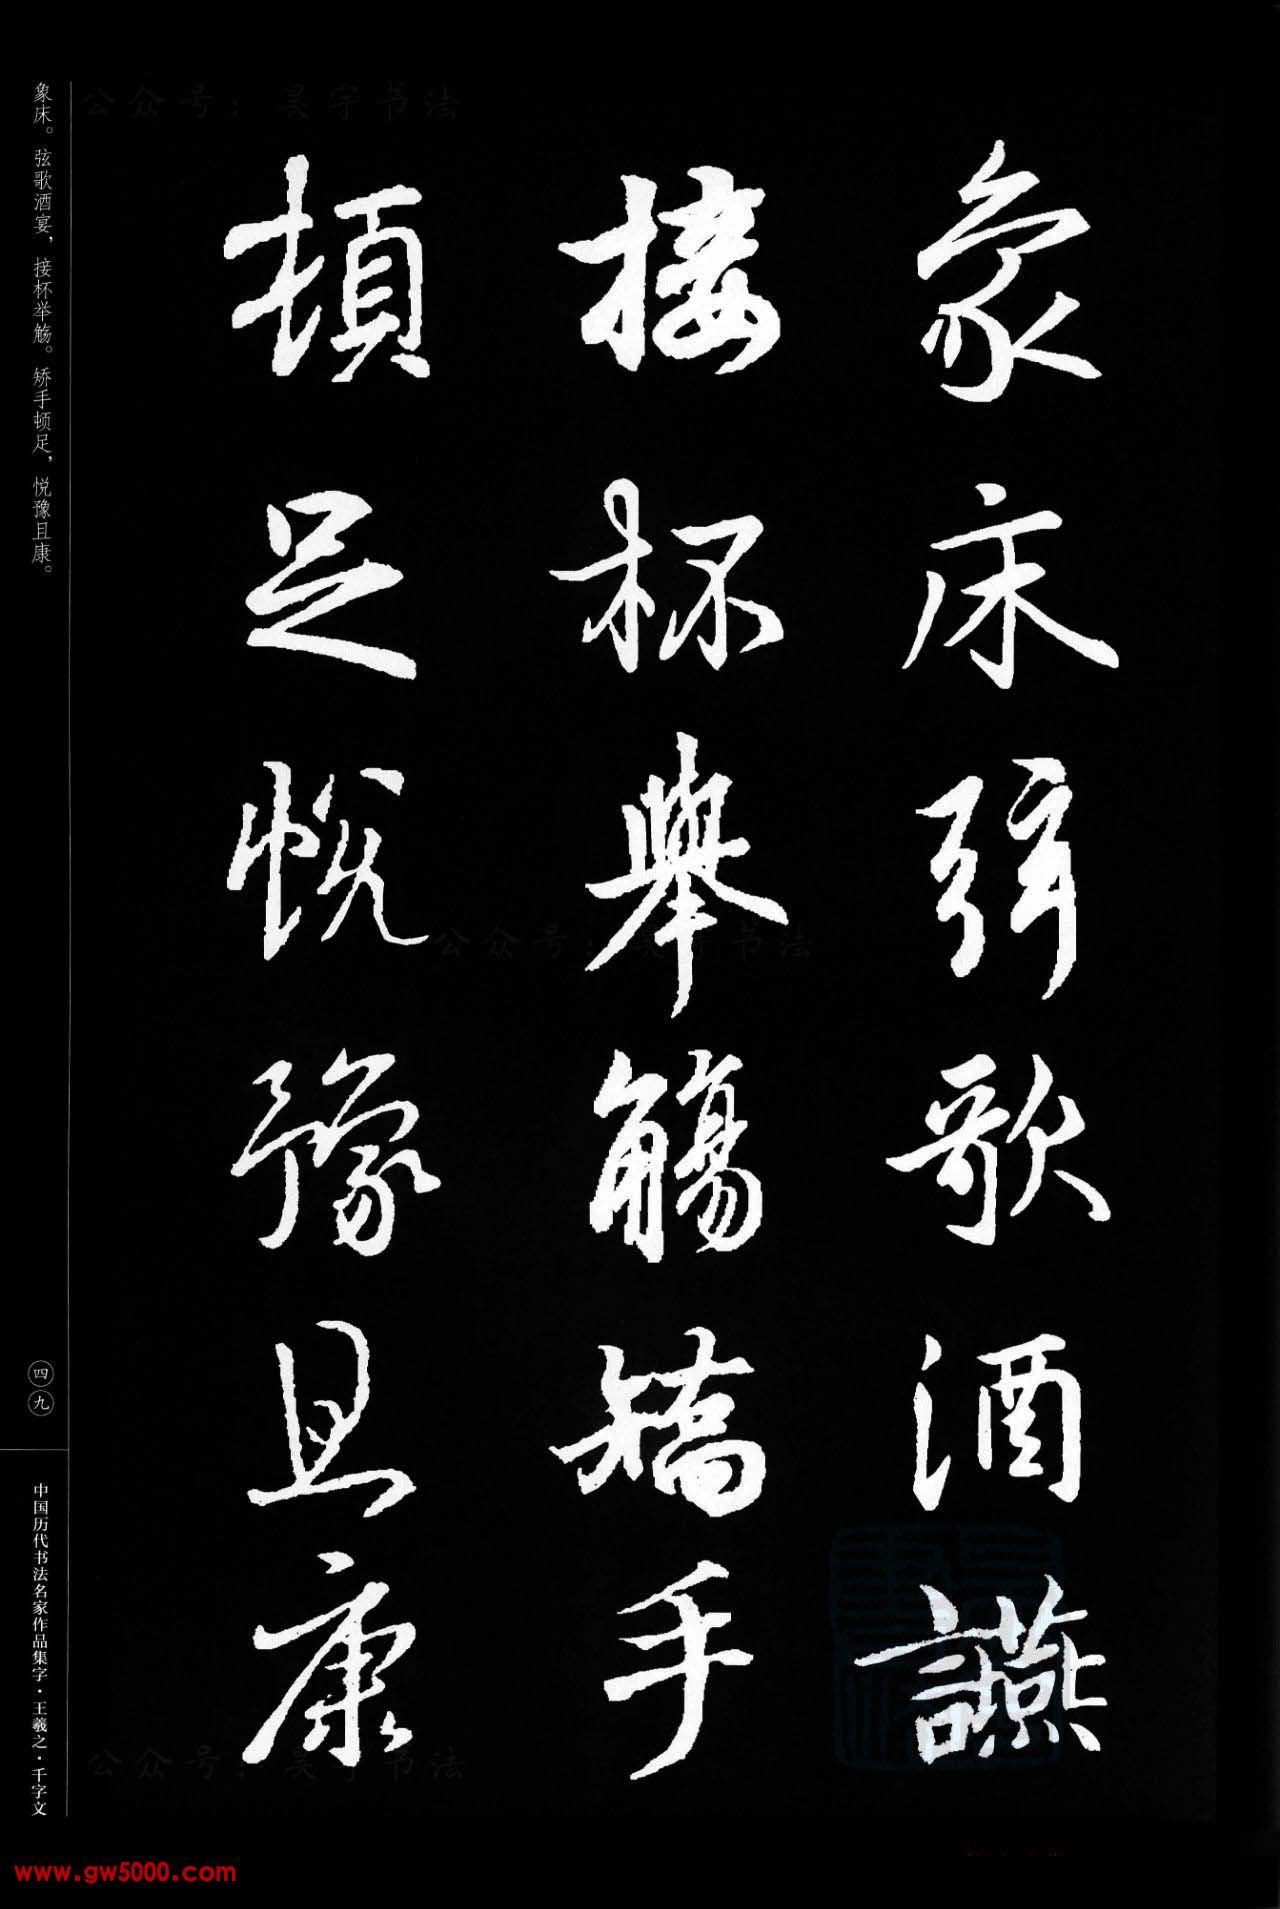 象床弦歌酒讌
接杯舉觴矯手
頓足悦豫且康
象床。弦歌酒宴，接杯举觞。矫手顿足，悦豫且康。
四九
中国历代书法名家作品集字·王羲之·千字文
公众号：昊宇书法
公众号：昊宇书法
公众号：昊宇书法
www.gw5000.com